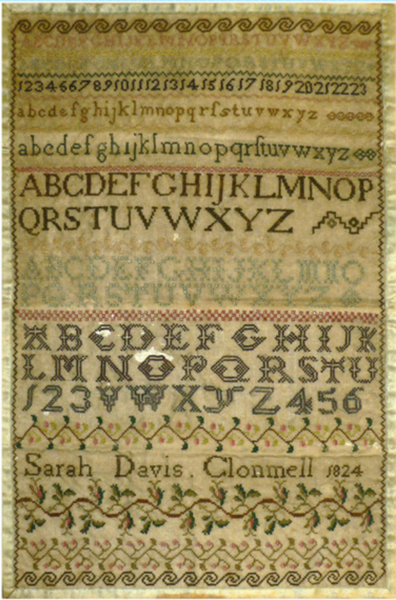 ABCDEFGHIJKLMNOPQRSTUVWXYZ
1234667891011121314151617181920212223
abcdefghijklmnopqrſstuvwxyz
abcdefghijklmnopqrſtuvwxyz
ABCDEFGHIJKLMNOP
QRSTUVWXYZ
ABCDEFGHIJKLMNO
PQRSTUVWXYZ
ABCDEFGHIJK
LMNOPQRSTU
123VWXYZ456
Sarah Davis. Clonmell 1824